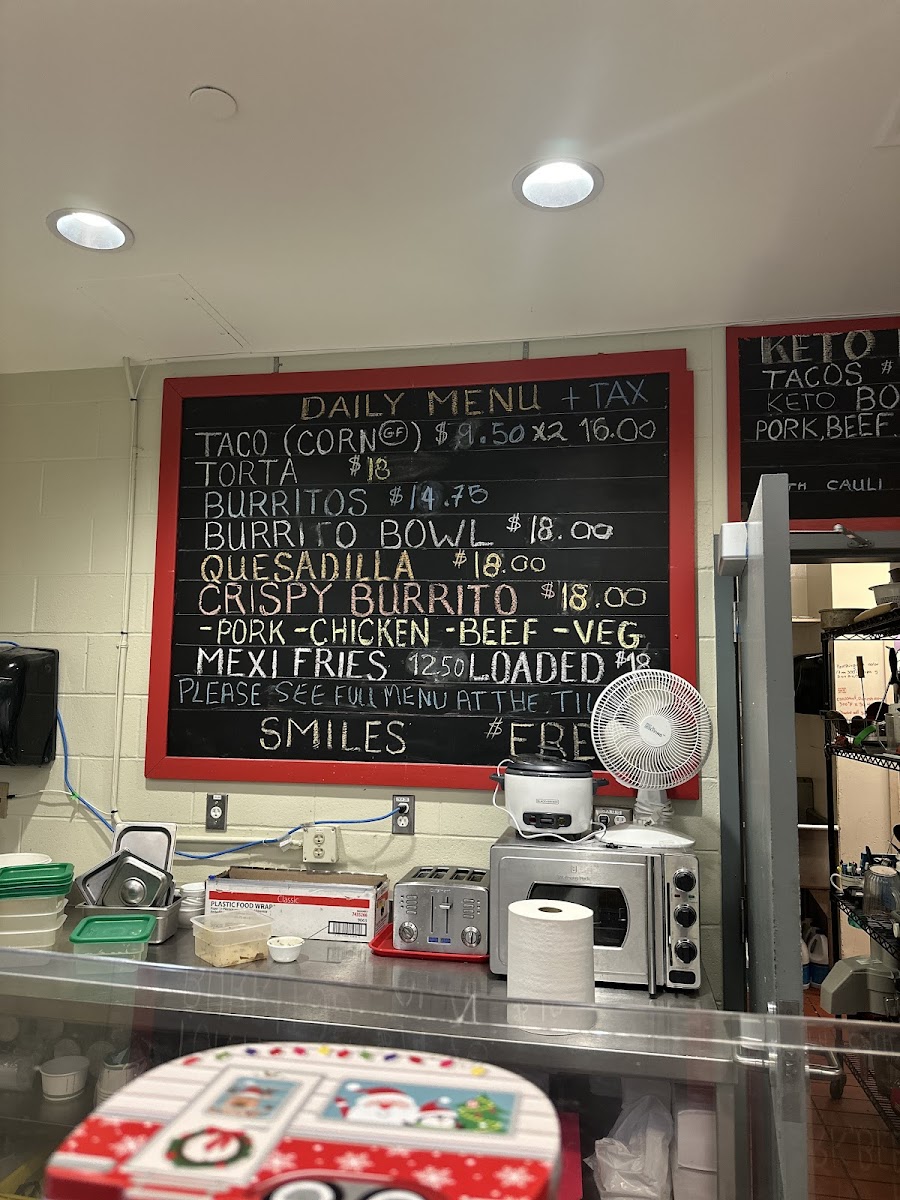 DAILY MENU + TAX
TACO (CORN GF) $9.50 X2 16.00
TORTA $18
BURRITOS $14.75
BURRITO BOWL $18.00
QUESADILLA $18.00
CRISPY BURRITO $18.00
-PORK -CHICKEN -BEEF -VEG
MEXI FRIES 12.50 LOADED $18
PLEASE SEE FULL MENU AT THE
SMILES $FREE
KETO
TACOS $
KETO
PORK, BEEF
CAULI
Classic
PLASTIC FOOD WRAP